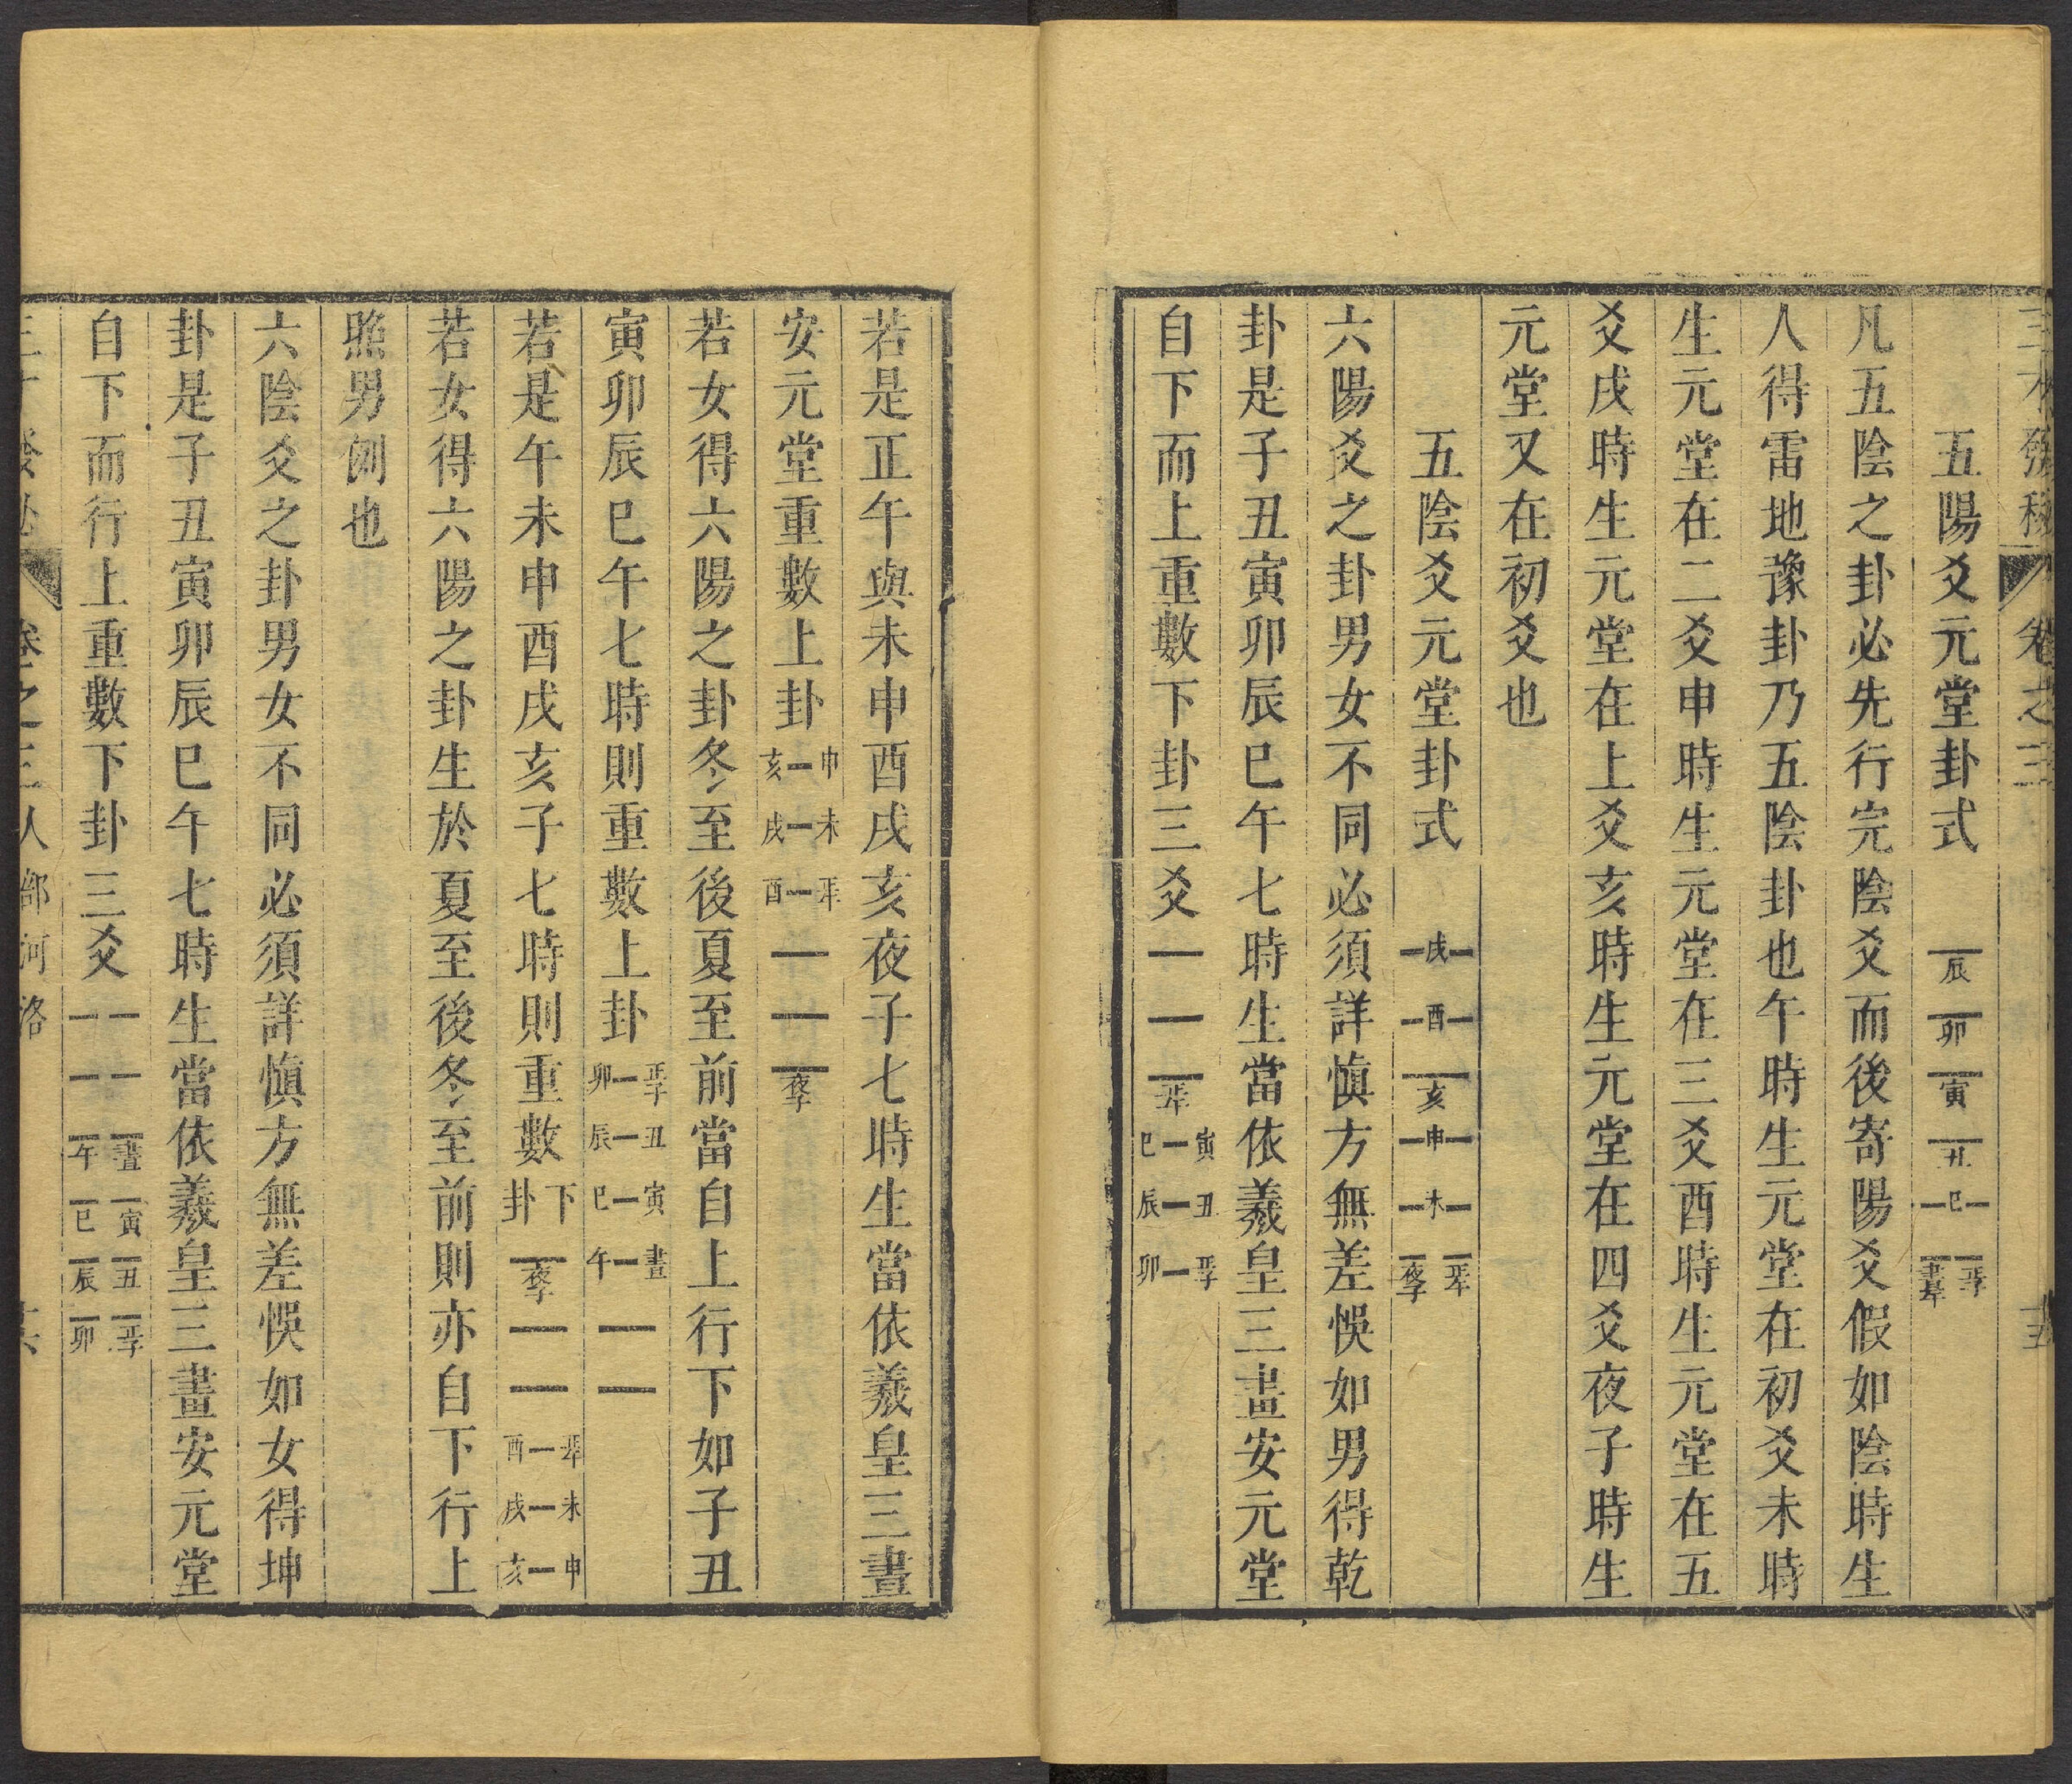 五陽爻元堂卦式 辰 卯 寅 丑 巳 正子 晝午
凡五陰之卦必先行完陰爻而後寄陽爻假如陰時生
人得雷地豫卦乃五陰卦也午時生元堂在初爻未時
生元堂在二爻申時生元堂在三爻酉時生元堂在五
爻戌時生元堂在上爻亥時生元堂在四爻夜子時生
元堂又在初爻也
五陰爻元堂卦式 戌 酉 亥 申 未 正午 夜子
六陽爻之卦男女不同必須詳慎方無差悞如男得乾
卦是子丑寅卯辰巳午七時生當依羲皇三畫安元堂
自下而上重數下卦三爻 正午 寅 巳 丑 辰 正子 卯
若是正午與未申酉戌亥夜子七時生當依羲皇三畫
安元堂重數上卦 申 亥 未 戌 正午 酉 夜子
若女得六陽之卦冬至後夏至前當自上行下如子丑
寅卯辰巳午七時則重數上卦 正子 卯 丑 辰 寅 巳 晝 午
若是午未申酉戌亥子七時則重數下卦 夜子 正午 酉 未 戌 申 亥
若女得六陽之卦生於夏至後冬至前則亦自下行上
照男例也
六陰爻之卦男女不同必須詳慎方無差悞如女得坤
卦是子丑寅卯辰巳午七時生當依羲皇三畫安元堂
自下而行上重數下卦三爻 晝 午 寅 巳 丑 辰 正子 卯
卷之三人部河洛